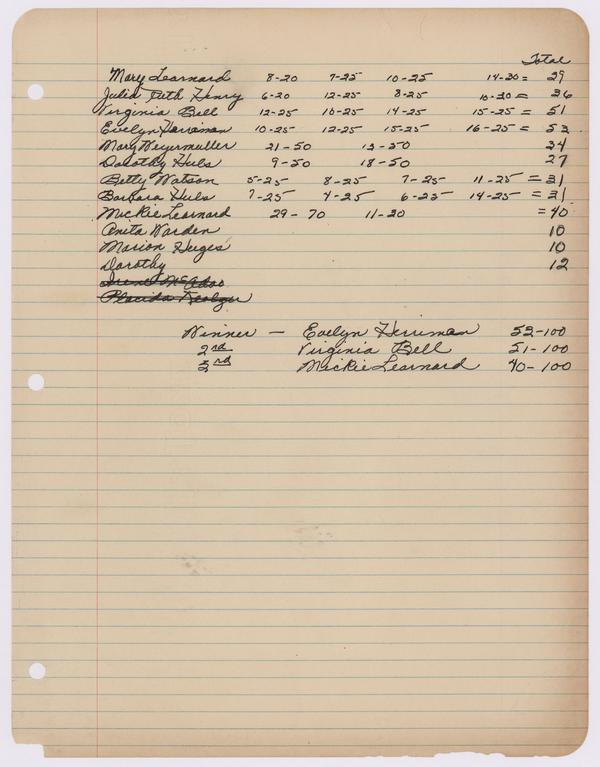 Total
Mary Learnard 8-20 7-25 10-25 14-30 = 39
Julia Ruth Henry 6-20 12-25 8-25 10-30 = 36
Virginia Bell 12-25 10-25 14-25 15-25 = 51
Evelyn Herriman 10-25 12-25 15-25 16-25 = 53
Mary Weyrmuller 21-50 13-50 34
Dorothy Huls 9-50 18-50 27
Betty Watson 5-25 8-25 7-25 11-25 = 31
Barbara Huls 7-25 4-25 6-25 14-25 = 31
Mickie Learnard 29-70 11-30 = 40
Anita Warden 10
Marion Heges 10
Dorothy 12
Irene McAdoo
Placida
Winner — Evelyn Herriman 53-100
2nd Virginia Bell 51-100
3rd Mickie Learnard 40-100